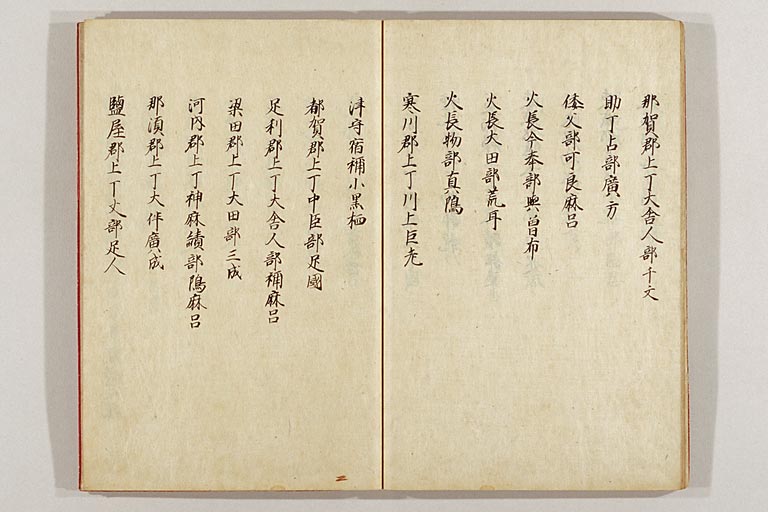 那賀郡上丁大舎人部千文
助丁占部廣方
倭父部可良麻呂
火長今奉部與曽布
火長大田部荒耳
火長物部真嶋
寒川郡上丁川上巨老
津守宿禰小黒栖
都賀郡上丁中臣部足國
足利郡上丁大舎人部禰麻呂
梁田郡上丁大田部三成
河内郡上丁神麻績部嶋麻呂
那須郡上丁大伴廣成
鹽屋郡上丁丈部足人